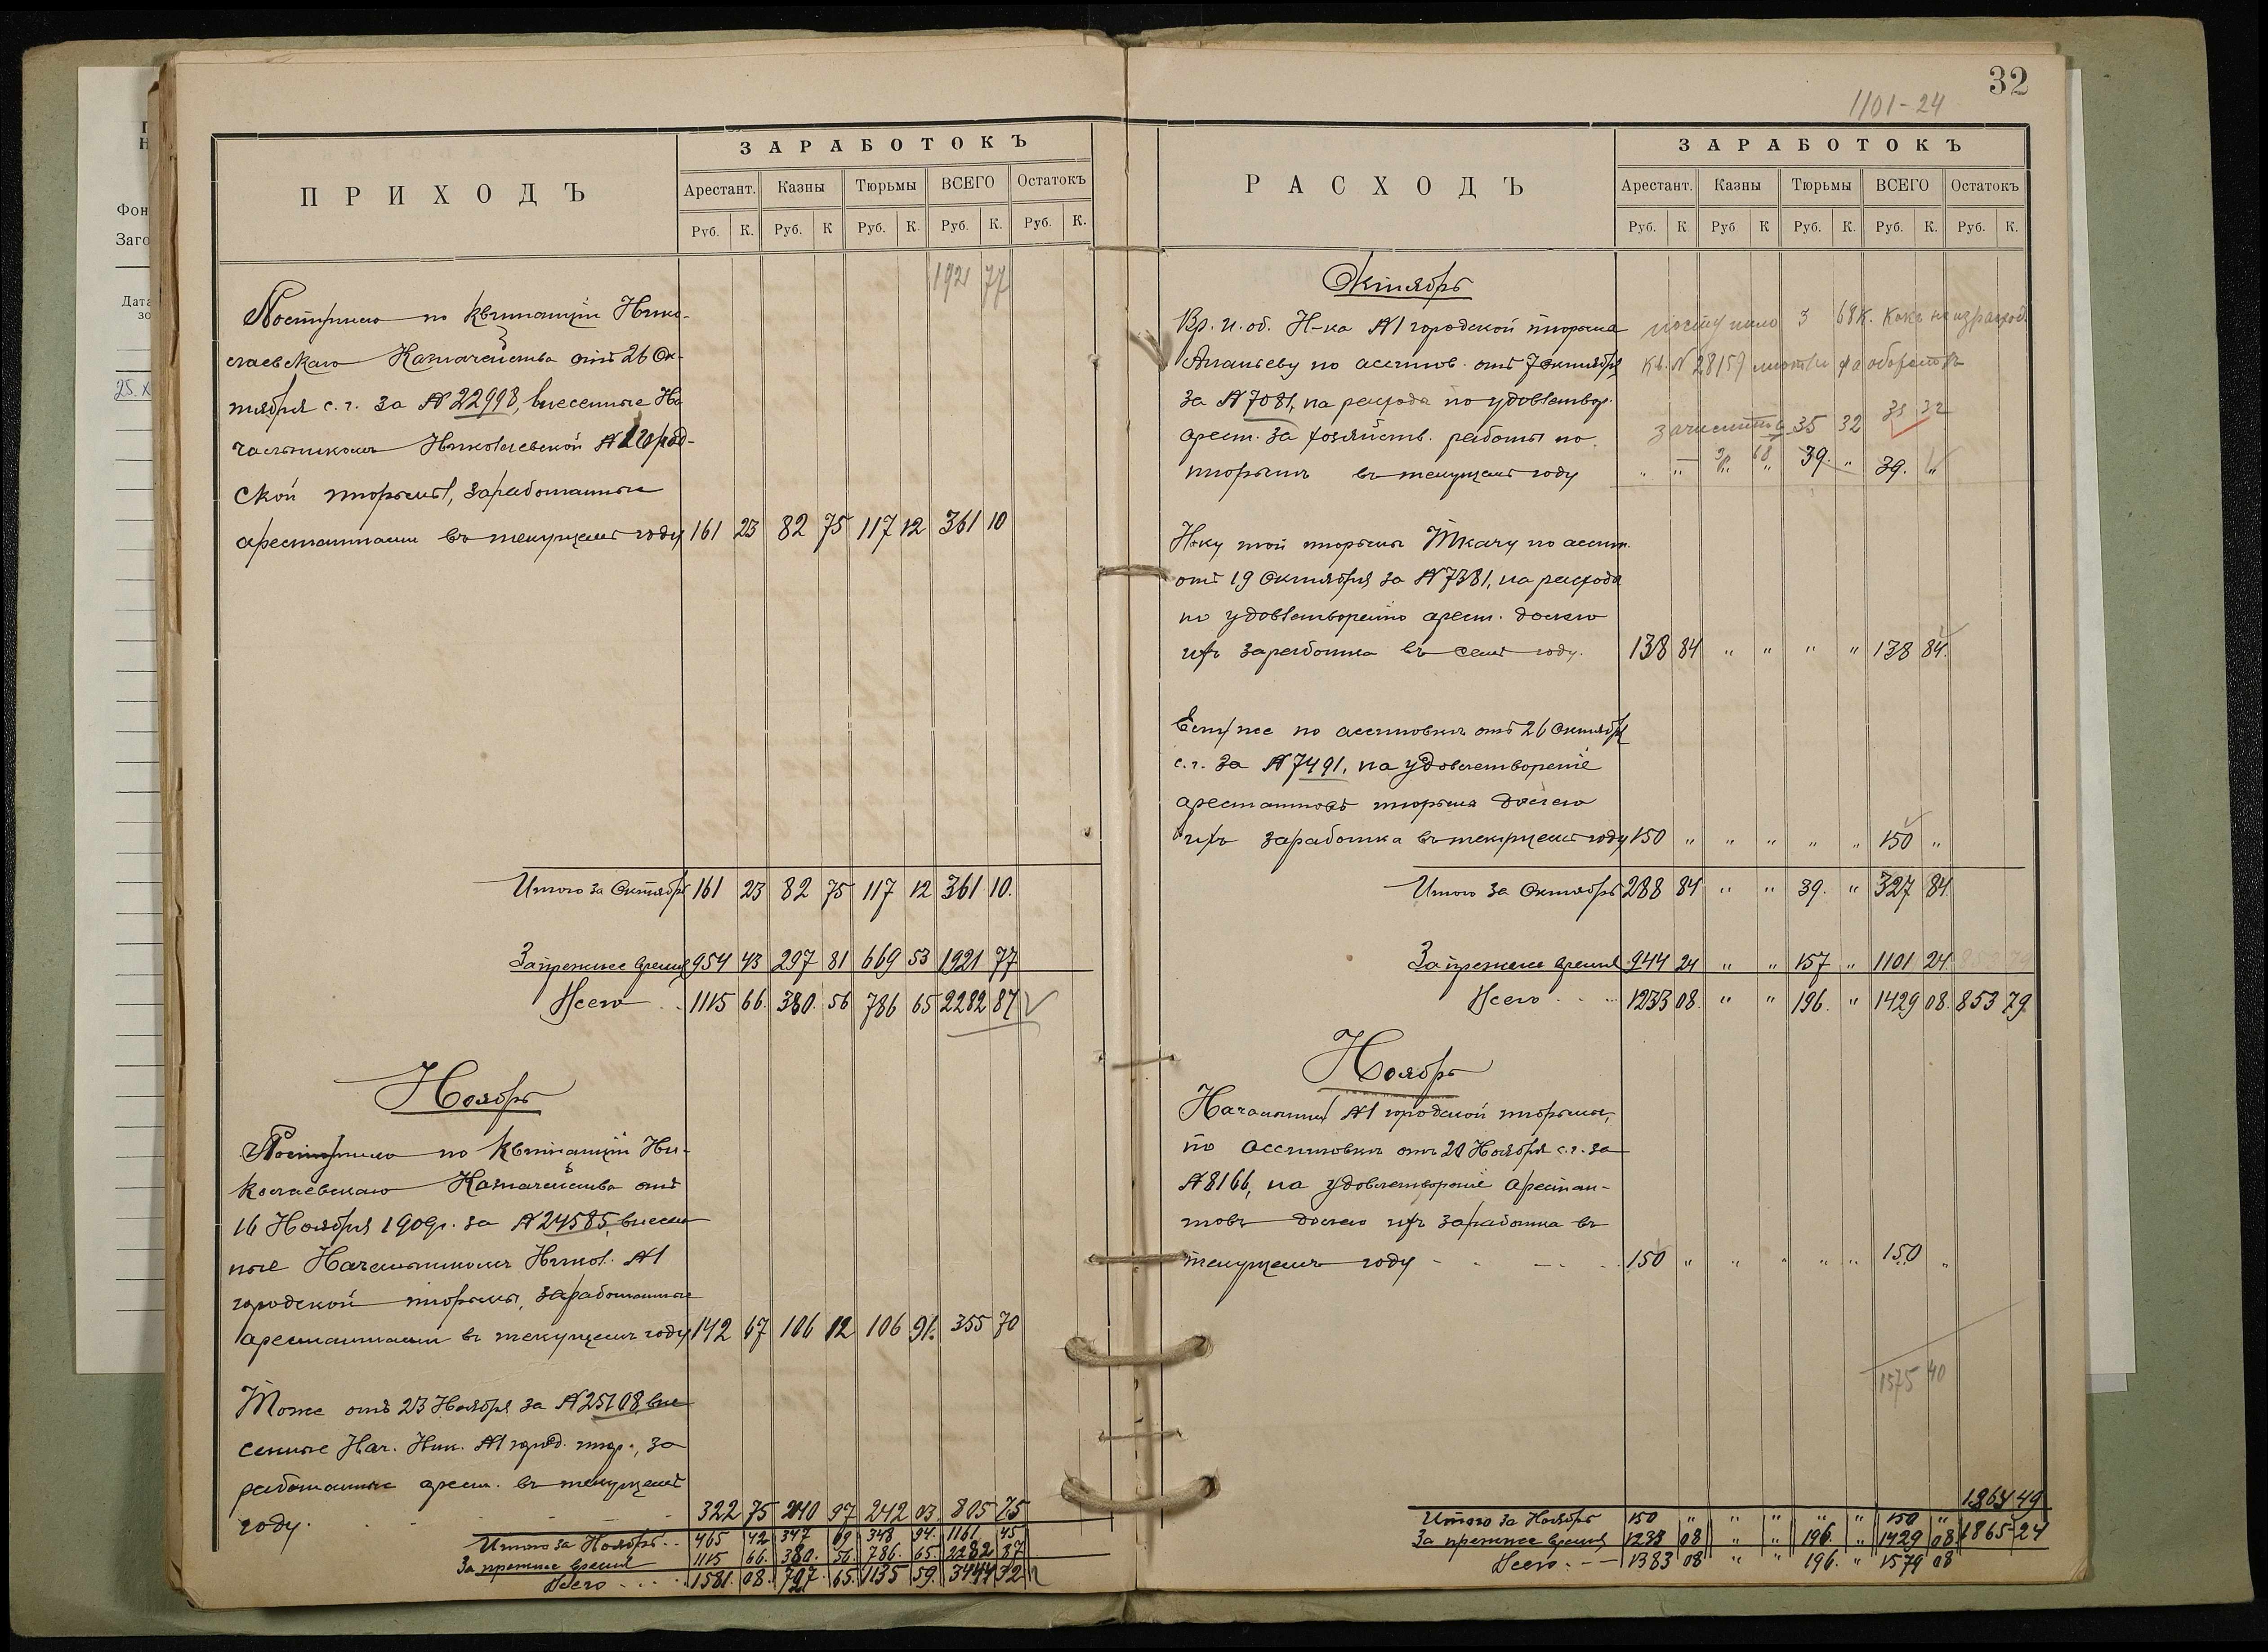 32
1101-24
ПРИХОДЪ
ЗАРАБОТОКЪ
Арестант. Казны Тюрьмы ВСЕГО Остатокъ
Руб. К. Руб. К Руб. К. Руб. К. Руб. К.
1921 77
Поступило по квитанціи Нико-
лаевскаго Казначейства отъ 26 Ок-
тября с. г. за № 22998, внесенные На
чальникомъ Николаевской № 1 Город-
ской тюрьмы, заработанные
арестантами въ текущемъ году 161 23 82 75 117 12 361 10
Итого за Октябрь 161 23 82 75 117 12 361 10.
За прежнее время 954 43 297 81 669 53 1921 77
Всего 1115 66. 380. 56 786 65 2282 87
Ноябрь
Поступило по квитанціи Ни-
колаевскаго Казначейства отъ
16 Ноября 1909г. за № 24585, внесен
ные Начальникомъ Никол. № 1
городской тюрьмы, заработанные
арестантами въ текущемъ году 142 67 106 12 106 91. 355 70
Тоже отъ 23 Ноября за № 25108, вне
сенные Нач. Ник. № 1 город. тюр., за
работанные арест. въ текущемъ
году. 322 75 240 97 242 03. 805 75
Итого за Ноябрь 465 42 347 09 348 94. 1161 45
За прежнее время 1115 66. 380. 56. 786. 65. 2282 87
Всего 1581. 08. 727. 65. 1135 59. 3444 32
РАСХОДЪ
ЗАРАБОТОКЪ
Арестант. Казны Тюрьмы ВСЕГО Остатокъ
Руб. К. Руб К Руб. К. Руб. К. Руб. К.
Октябрь
Вр. и. об. Н-ка № 1 городской тюрьмы поступило 3 68 к. какъ неизрасход
Ананьеву по ассигнов. отъ 7 октября кв. № 28159
за № 7081, на расходъ по удовлетвор.
арест. за хозяйств. работы по 35 32 35 32
тюрьмѣ въ текущемъ году " " 3 68 39. " 39. "
Н-ку той тюрьмы Ткачу по ассигн.
отъ 19 Октября за № 7381, на расходъ
по удовлетворенію арест. долею
ихъ заработка въ семъ году. 138 84 " " " " 138 84.
Ему же по ассигновкѣ отъ 26 Октября
с. г. за № 7491, на удовлетвореніе
арестантовъ тюрьмы долею
ихъ заработка въ текущемъ году 150 " " " " " 150 "
Итого за Октябрь 288 84 " " 39. " 327 84.
За прежнее время 944 24 " " 157 " 1101 24.
Всего 1233 08. " " 196. " 1429 08. 853 79.
Ноябрь
Начальнику № 1 городской тюрьмы,
по ассигновкѣ отъ 20 Ноября с. г. за
№ 8166, на удовлетвореніе арестан-
товъ долею ихъ заработка въ
текущемъ году 150 " " " " " 150 "
1575 40
1864 49
Итого за Ноябрь 150 " " " " " 150 "
За прежнее время 1233 08 " " 196. " 1429 08 1865-24
Всего 1383 08 " " 196. " 1579 08
Фон
Заго
Дата
зо
25. X